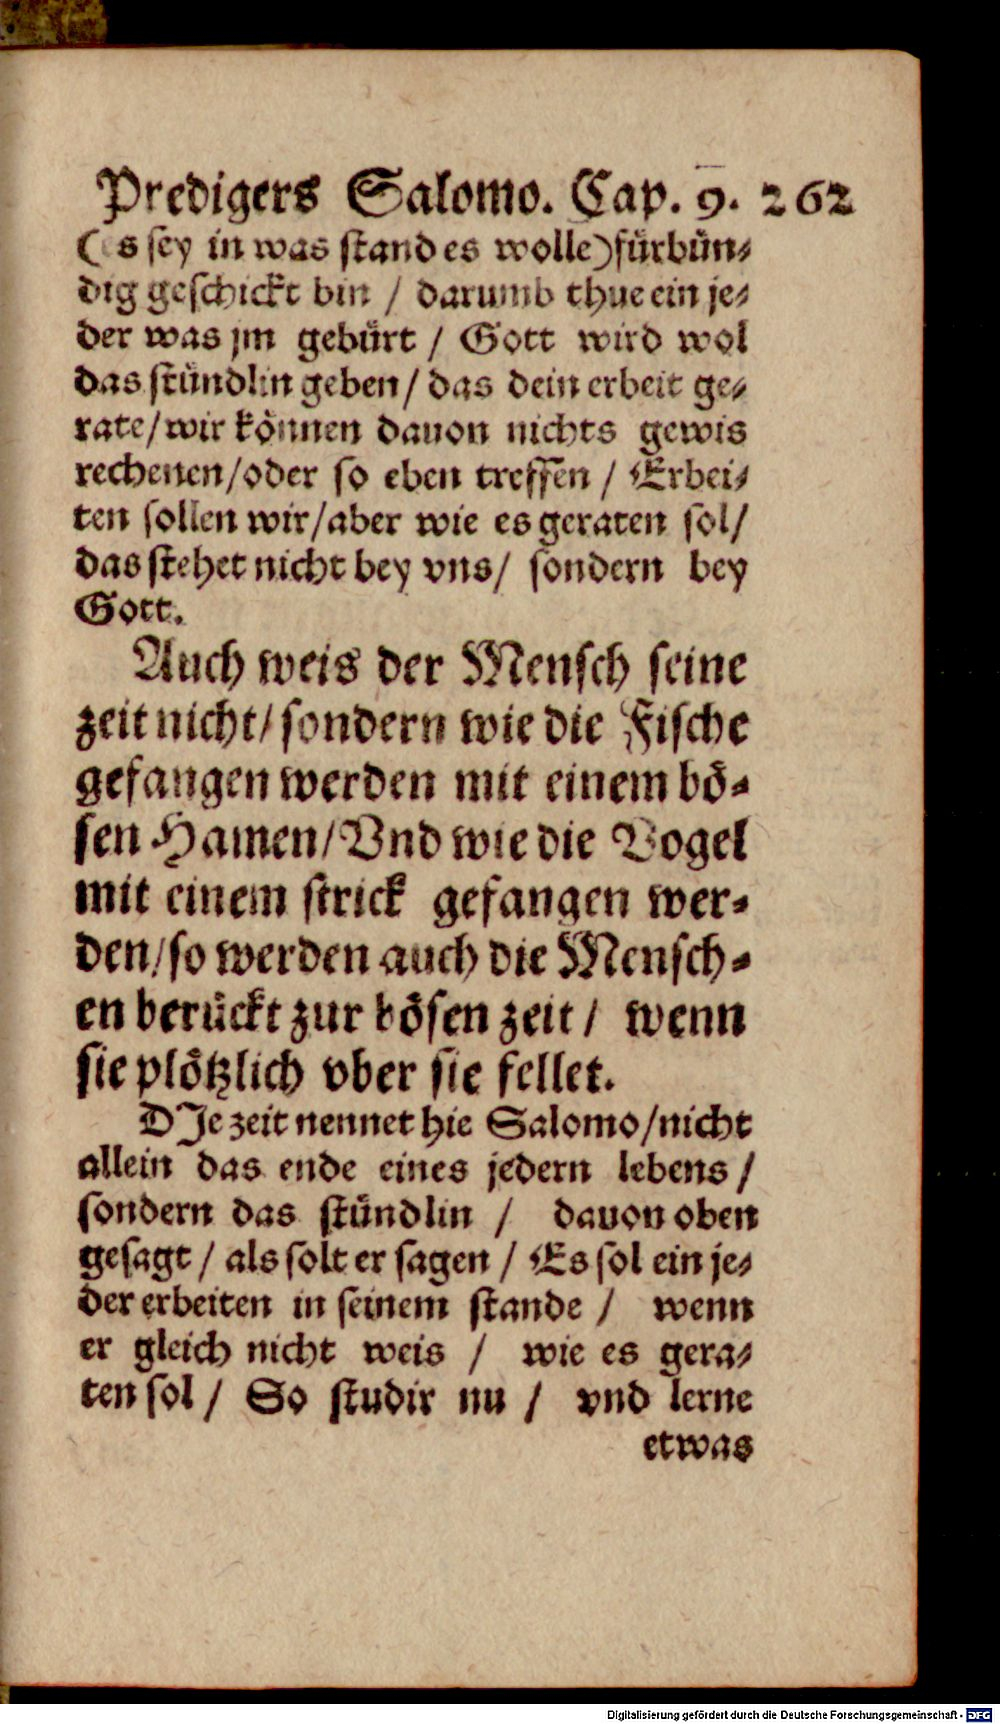 Predigers Salomo. Cap. 9. 262
(es sey in was stand es wolle) fürbün-
dig geschickt bin / darumb thue ein je-
der was jm gebürt / Gott wird wol
das stündlin geben / das dein erbeit ge-
rate / wir können dauon nichts gewis
rechenen / oder so eben treffen / Erbei-
ten sollen wir / aber wie es geraten sol /
das stehet nicht bey vns / sondern bey
Gott.
Auch weis der Mensch seine
zeit nicht / sondern wie die Fische
gefangen werden mit einem bö-
sen Hamen / Vnd wie die Vogel
mit einem strick gefangen wer-
den / so werden auch die Mensch-
en berückt zur bösen zeit / wenn
sie plötzlich vber sie fellet.
DJe zeit nennet hie Salomo / nicht
allein das ende eines jedern lebens /
sondern das stündlin / dauon oben
gesagt / als solt er sagen / Es sol ein je-
der erbeiten in seinem stande / wenn
er gleich nicht weis / wie es gera-
ten sol / So studir nu / vnd lerne
etwas
Digitalisierung gefördert durch die Deutsche Forschungsgemeinschaft - DFG